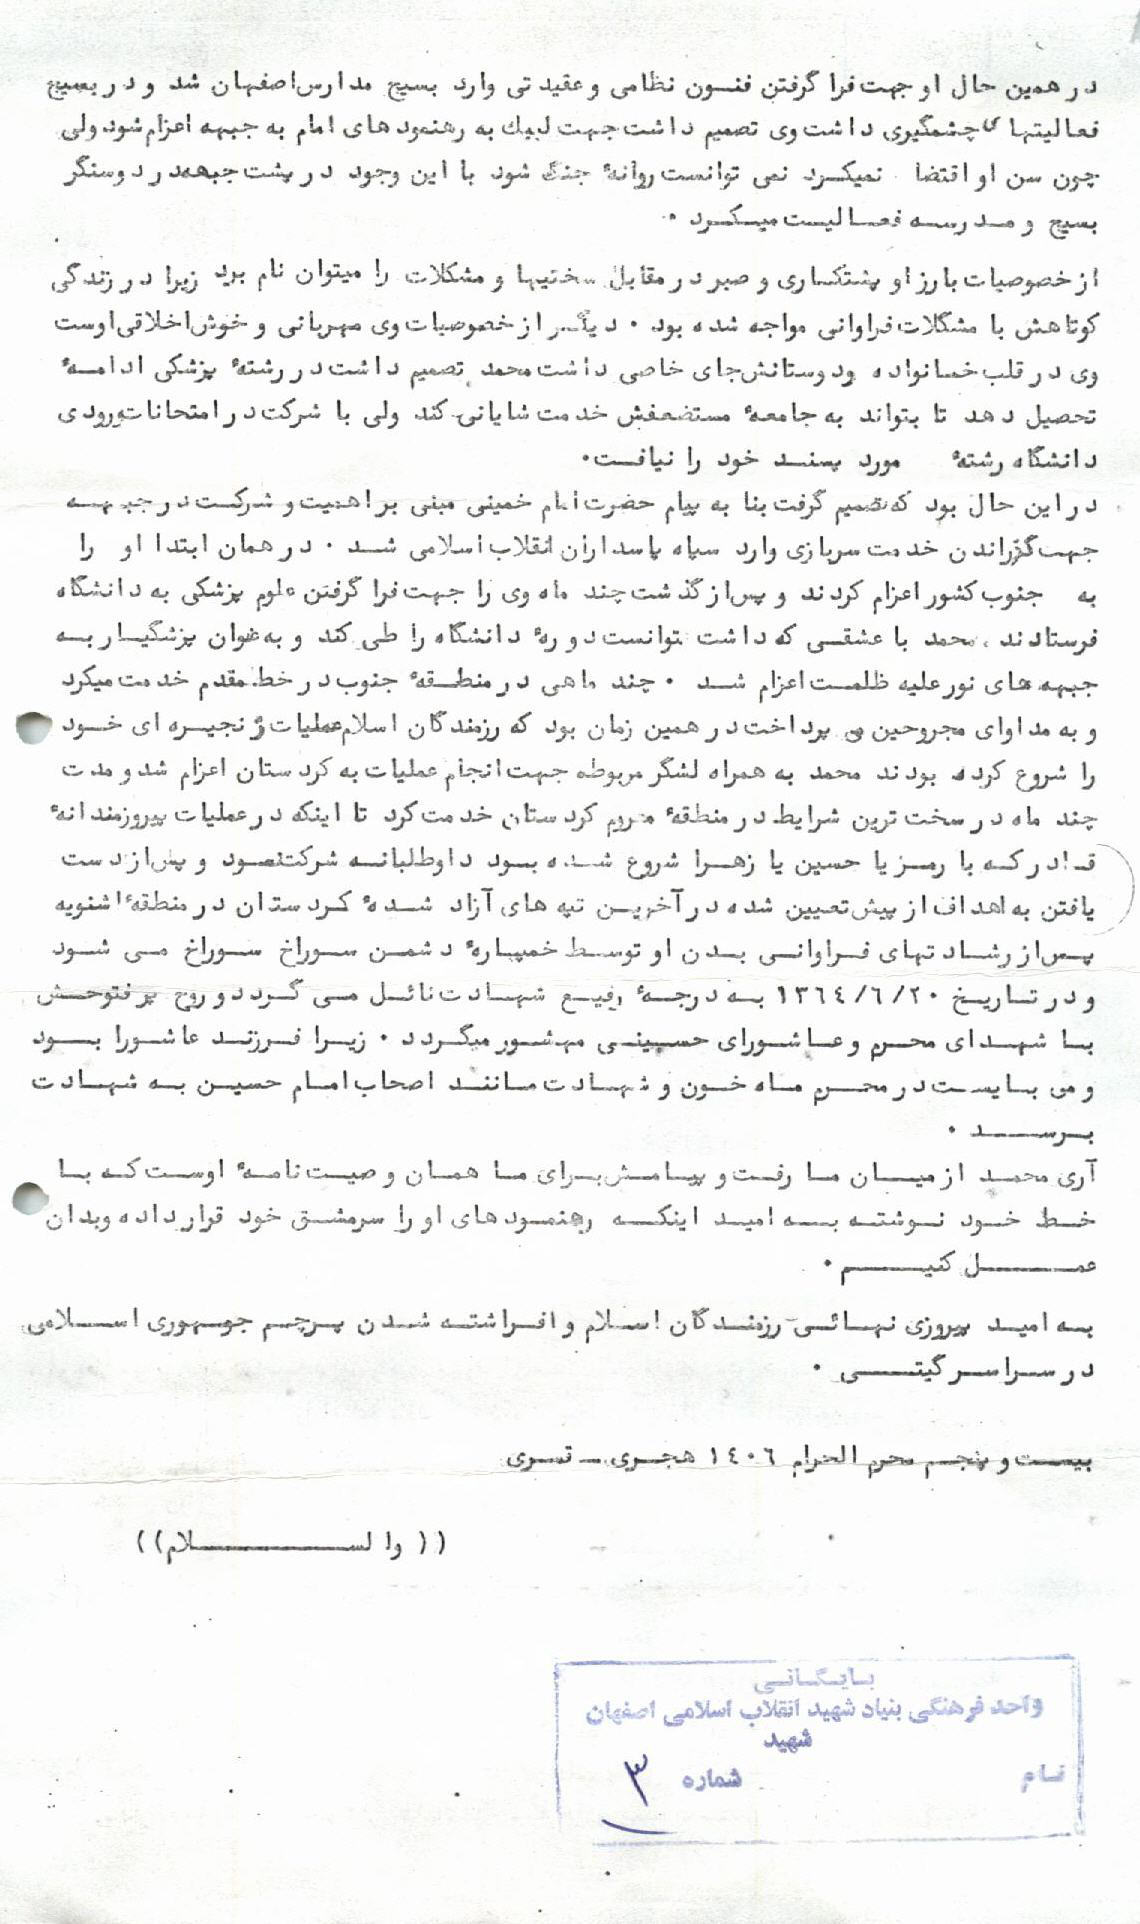 در همین حال او جهت فرا گرفتن فنون نظامی و عقیدتی وارد بسیج مدارس اصفهان شد و در بسیج
فعالیتهای چشمگیری داشت وی تصمیم داشت جهت لبیک به رهنمود های امام به جبهه اعزام شود ولی
چون سن او اقتضا نمیکرد نمی توانست روانهٔ جنگ شود با این وجود در پشت جبهه در دوسنگر
بسیج و مدرسه فعالیت میکرد ۰
از خصوصیات بارز او پشتکاری و صبر در مقابل سختیها و مشکلات را میتوان نام برد زیرا در زندگی
کوتاهش با مشکلات فراوانی مواجه شده بود ۰ دیگر از خصوصیات وی مهربانی و خوش اخلاقی اوست
وی در قلب خانواده ودوستانش جای خاصی داشت محمد تصمیم داشت در رشتهٔ پزشکی ادامهٔ
تحصیل دهد تا بتواند به جامعهٔ مستضعفش خدمت شایانی کند ولی با شرکت در امتحانات ورودی
دانشگاه رشتهٔ مورد پسند خود را نیافت۰
در این حال بود که تصمیم گرفت بنا به پیام حضرت امام خمینی مبنی بر اهمیت و شرکت در جبهه
جهت گذراندن خدمت سربازی وارد سپاه پاسداران انقلاب اسلامی شد ۰ در همان ابتدا او را
به جنوب کشور اعزام کردند و پس از گذشت چند ماه وی را جهت فرا گرفتن علوم پزشکی به دانشگاه
فرستادند ، محمد با عشقی که داشت توانست دورهٔ دانشگاه را طی کند و به عنوان پزشگیار به
جبهه های نور علیه ظلمت اعزام شد ۰ چند ماهی در منطقهٔ جنوب در خط مقدم خدمت میکرد
و به مداوای مجروحین می پرداخت در همین زمان بود که رزمندگان اسلام عملیات زنجیره ای خود
را شروع کرده بودند محمد به همراه لشگر مربوطه جهت انجام عملیات به کردستان اعزام شد و مدت
چند ماه در سخت ترین شرایط در منطقهٔ محروم کردستان خدمت کرد تا اینکه در عملیات پیروزمندانهٔ
قادر که با رمز یا حسین یا زهرا شروع شده بود داوطلبانه شرکت نمود و پس از دست
یافتن به اهداف از پیش تعیین شده در آخرین تپه های آزاد شدهٔ کردستان در منطقهٔ اشنویه
پس از رشادتهای فراوانی بدن او توسط خمپارهٔ دشمن سوراخ سوراخ می شود
و در تاریخ ۱۳٦٤/٦/۲۰ به درجهٔ رفیع شهادت نائل می گردد و روح پر فتوحش
با شهدای محرم و عاشورای حسینی مهشور میگردد ۰ زیرا فرزند عاشورا بود
و می بایست در محرم ماه خون و شهادت مانند اصحاب امام حسین به شهادت
برسد ۰
آری محمد از میان ما رفت و پیامش برای ما همان وصیت نامهٔ اوست که با
خط خود نوشته به امید اینکه رهنمودهای او را سرمشق خود قرار داده وبدان
عمل کنیم ۰
به امید پیروزی نهائی رزمندگان اسلام و افراشته شدن پرچم جوهوری اسلامی
در سراسر گیتی ۰
بیست و پنجم محرم الحرام ۱٤۰٦ هجری - قمری
(( والسلام ))
بایگانی
واحد فرهنگی بنیاد شهید انقلاب اسلامی اصفهان
شهید
نام شماره ۳